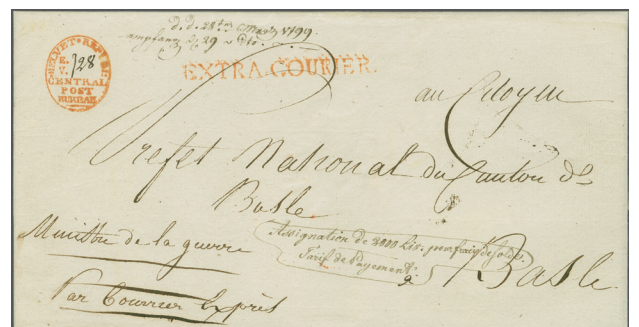 d. d. 28ten Merz 1799
empfang d. 29 dto.
HELVET. REPUBL.
E. 728
V.
CENTRAL
POST
BUREAU
EXTRA.COURIER.
au Citoyen
Prefet National du Canton de
Basle
Ministre de la guerre
Assignation de Liv. pour fraix de solde.
Tarif de Payement.
a Basle
Par Courrier Exprès